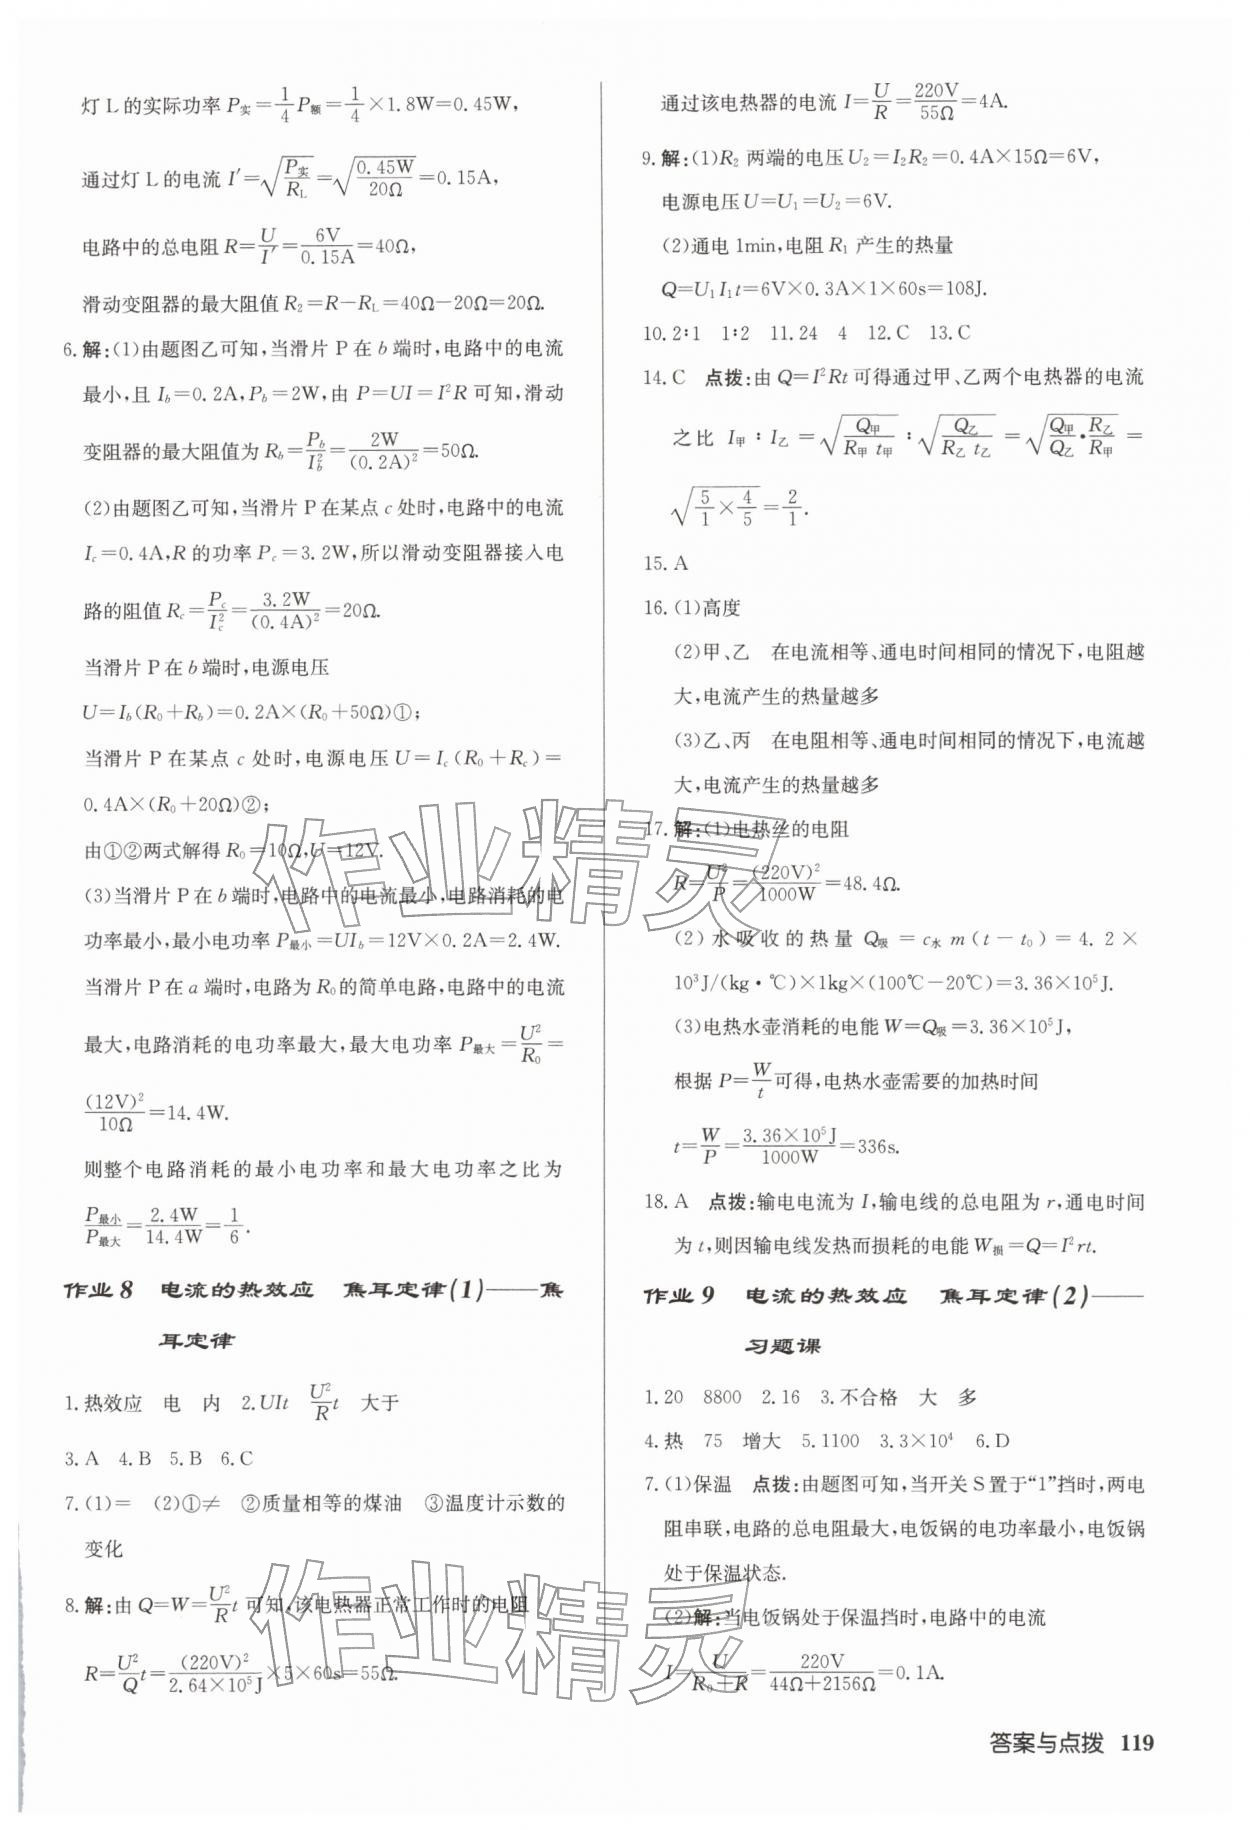 灯 L 的实际功率 P实＝1/4P额＝1/4×1.8W＝0.45W，
通过灯 L 的电流 I′＝√(P实/RL)＝√(0.45W/20Ω)＝0.15A，
电路中的总电阻 R＝U/I′＝6V/0.15A＝40Ω，
滑动变阻器的最大阻值 R₂＝R－RL＝40Ω－20Ω＝20Ω.
6. 解：(1)由题图乙可知，当滑片 P 在 b 端时，电路中的电流
最小，且 Ib＝0.2A，Pb＝2W，由 P＝UI＝I²R 可知，滑动
变阻器的最大阻值为 Rb＝Pb/Ib²＝2W/(0.2A)²＝50Ω.
(2)由题图乙可知，当滑片 P 在某点 c 处时，电路中的电流
Ic＝0.4A，R 的功率 Pc＝3.2W，所以滑动变阻器接入电
路的阻值 Rc＝Pc/Ic²＝3.2W/(0.4A)²＝20Ω.
当滑片 P 在 b 端时，电源电压
U＝Ib(R₀＋Rb)＝0.2A×(R₀＋50Ω)①；
当滑片 P 在某点 c 处时，电源电压 U＝Ic(R₀＋Rc)＝
0.4A×(R₀＋20Ω)②；
由①②两式解得 R₀＝10Ω，U＝12V.
(3)当滑片 P 在 b 端时，电路中的电流最小，电路消耗的电
功率最小，最小电功率 P最小＝UIb＝12V×0.2A＝2.4W.
当滑片 P 在 a 端时，电路为 R₀的简单电路，电路中的电流
最大，电路消耗的电功率最大，最大电功率 P最大＝U²/R₀＝
(12V)²/10Ω＝14.4W.
则整个电路消耗的最小电功率和最大电功率之比为
P最小/P最大＝2.4W/14.4W＝1/6.
作业 8　电流的热效应　焦耳定律(1)——焦
耳定律
1. 热效应　电　内　2. UIt　U²/R t　大于
3. A　4. B　5. B　6. C
7. (1)＝　(2)①≠　②质量相等的煤油　③温度计示数的
变化
8. 解：由 Q＝W＝U²/R t 可知，该电热器正常工作时的电阻
R＝U²/Q t＝(220V)²/2.64×10⁵J×5×60s＝55Ω.
通过该电热器的电流 I＝U/R＝220V/55Ω＝4A.
9. 解：(1)R₂ 两端的电压 U₂＝I₂R₂＝0.4A×15Ω＝6V，
电源电压 U＝U₁＝U₂＝6V.
(2)通电 1min，电阻 R₁ 产生的热量
Q＝U₁I₁t＝6V×0.3A×1×60s＝108J.
10. 2∶1　1∶2　11. 24　4　12. C　13. C
14. C　点拨：由 Q＝I²Rt 可得通过甲、乙两个电热器的电流
之比 I甲∶I乙＝√(Q甲/R甲t甲)∶√(Q乙/R乙t乙)＝√(Q甲/Q乙·R乙/R甲)＝
√(5/1×4/5)＝2/1.
15. A
16. (1)高度
(2)甲、乙　在电流相等、通电时间相同的情况下，电阻越
大，电流产生的热量越多
(3)乙、丙　在电阻相等、通电时间相同的情况下，电流越
大，电流产生的热量越多
17. 解：(1)电热丝的电阻
R＝U²/P＝(220V)²/1000W＝48.4Ω.
(2)水吸收的热量 Q吸＝c水m(t－t₀)＝4.2×
10³J/(kg·℃)×1kg×(100℃－20℃)＝3.36×10⁵J.
(3)电热水壶消耗的电能 W＝Q吸＝3.36×10⁵J，
根据 P＝W/t可得，电热水壶需要的加热时间
t＝W/P＝3.36×10⁵J/1000W＝336s.
18. A　点拨：输电电流为 I，输电线的总电阻为 r，通电时间
为 t，则因输电线发热而损耗的电能 W损＝Q＝I²rt.
作业 9　电流的热效应　焦耳定律(2)——
习题课
1. 20　8800　2. 16　3. 不合格　大　多
4. 热　75　增大　5. 1100　3.3×10⁴　6. D
7. (1)保温　点拨：由题图可知，当开关 S 置于“1”挡时，两电
阻串联，电路的总电阻最大，电饭锅的电功率最小，电饭锅
处于保温状态.
(2)解：当电饭锅处于保温挡时，电路中的电流
I＝U/(R₀＋R)＝220V/(44Ω＋2156Ω)＝0.1A.
答案与点拨　119
作业精灵
作业精灵